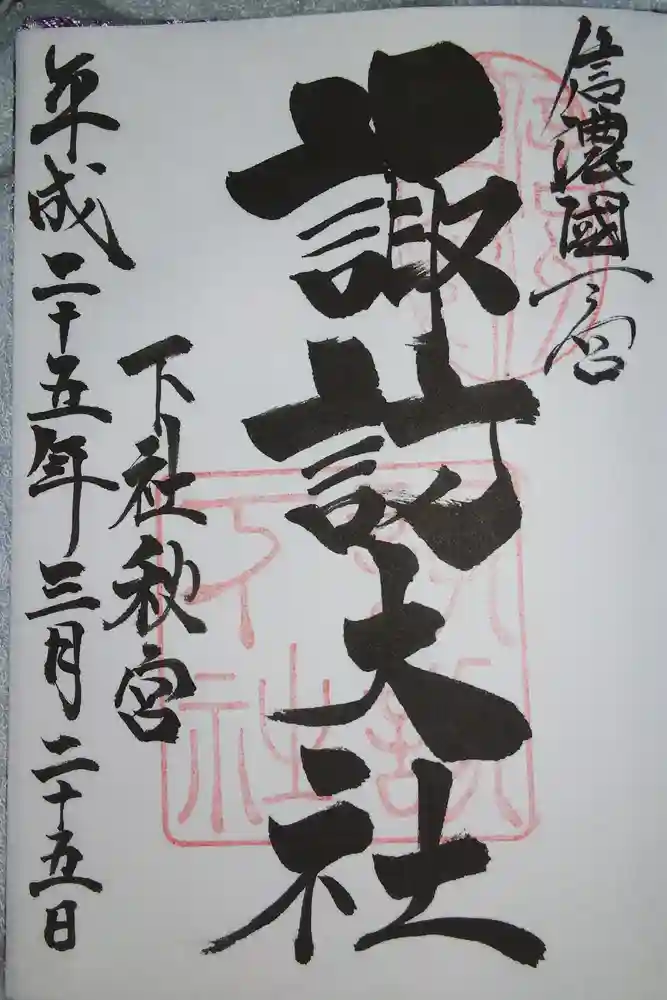 信濃國一之宮
諏訪大社
下社秋宮
平成二十五年三月二十五日
諏訪
下社